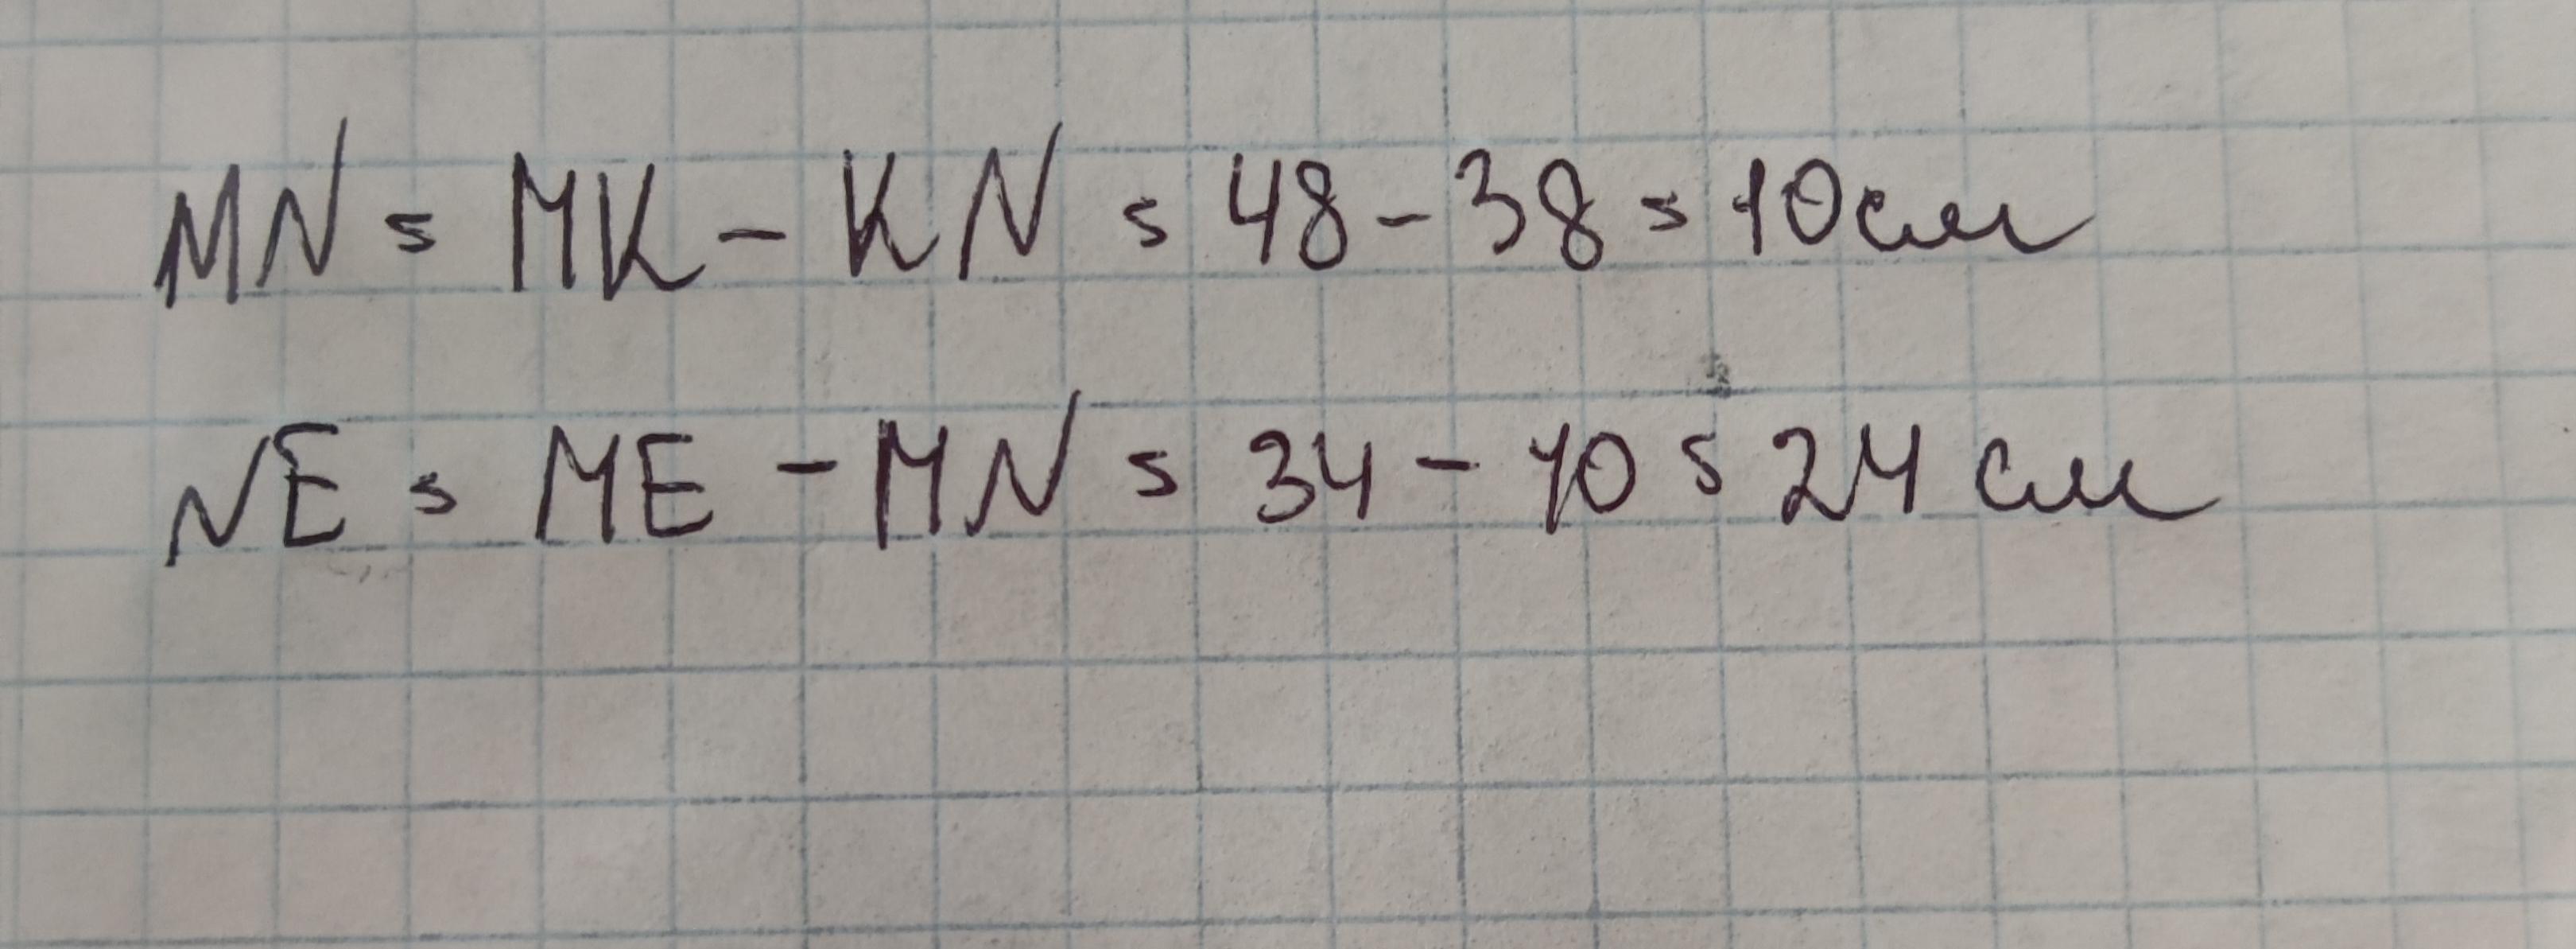 MN = MK - KN = 48 - 38 = 10 см
NE = ME - MN = 34 - 10 = 24 см